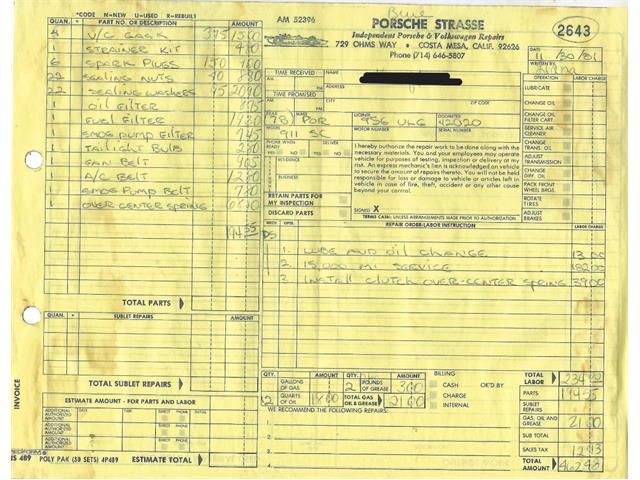 *CODE N=NEW U=USED R=REBUILT
QUAN. * PART NO. OR DESCRIPTION AMOUNT
4 V/C GASK 375 1500
1 STRAINER KIT
6 SPARK PLUGS 150
22 SEALING NUTS 40 880
22 SEALING WASHERS 95 2090
1 OIL FILTER
1 FUEL FILTER
1 SMOG PUMP FILTER
1 TAILIGHT BULB
1 FAN BELT
1 A/C BELT
1 SMOG PUMP BELT
1 OVER CENTER SPRING
TOTAL PARTS
QUAN. * SUBLET REPAIRS AMOUNT
TOTAL SUBLET REPAIRS
ESTIMATE AMOUNT - FOR PARTS AND LABOR
ADDITIONAL AUTHORIZED AMOUNT DATE TIME DIRECT PHONE AMOUNT
ADDITIONAL AUTHORIZED AMOUNT DIRECT PHONE
ADDITIONAL AUTHORIZED AMOUNT DIRECT PHONE
RS 489 POLY PAK (50 SETS) 4P489 ESTIMATE TOTAL
INVOICE
AM 52396
PORSCHE STRASSE
Independent Porsche & Volkswagen Repairs
729 OHMS WAY • COSTA MESA, CALIF. 92626
Phone (714) 646-5807
2643
DATE 11/30/81
WRITTEN BY
TIME RECEIVED NAME
ADDRESS
TIME PROMISED
CITY ZIP CODE
YEAR MAKE LICENSE ODOMETER
78 POR 956 ULG 42020
MODEL MOTOR NUMBER SERIAL NUMBER
911 SC
PHONE WHEN READY DELIVER
YES NO
RESIDENCE
BUSINESS
RETAIN PARTS FOR MY INSPECTION
DISCARD PARTS
I hereby authorize the repair work to be done along with the necessary materials. You and your employees may operate vehicle for purposes of testing, inspection or delivery at my risk. An express mechanic's lien is acknowledged on vehicle to secure the amount of repairs thereto. You will not be held responsible for loss or damage to vehicle or articles left in vehicle in case of fire, theft, accident or any other cause beyond your control.
SIGNED X
TERMS CASH: UNLESS ARRANGEMENTS MADE PRIOR TO AUTHORIZATION
OPERATION LABOR CHARGE
LUBRICATE
CHANGE OIL
CHANGE OIL FILTER CART.
SERVICE AIR CLEANER
CHANGE TRANS. OIL
ADJUST TRANSMISSION
CHANGE DIFF. OIL
PACK FRONT WHEEL BRGS.
ROTATE TIRES
ADJUST BRAKES
OPER. REPAIR ORDER-LABOR INSTRUCTION LABOR CHARGE
1. LUBE AND OIL CHANGE 13 00
2. 15,000 MI SERVICE 182 00
3. INSTALL CLUTCH OVER-CENTER SPRING 39 00
QTY. GALLONS OF GAS AMOUNT QTY. POUNDS OF GREASE AMOUNT
2 3 60
12 QUARTS OF OIL 18 00 TOTAL GAS OIL & GREASE 21 60
BILLING
CASH OK'D BY
CHARGE
INTERNAL
WE RECOMMEND THE FOLLOWING REPAIRS:
TOTAL LABOR 234 00
PARTS 194 55
SUBLET REPAIRS
GAS, OIL AND GREASE 21 60
SUB TOTAL
SALES TAX
TOTAL AMOUNT